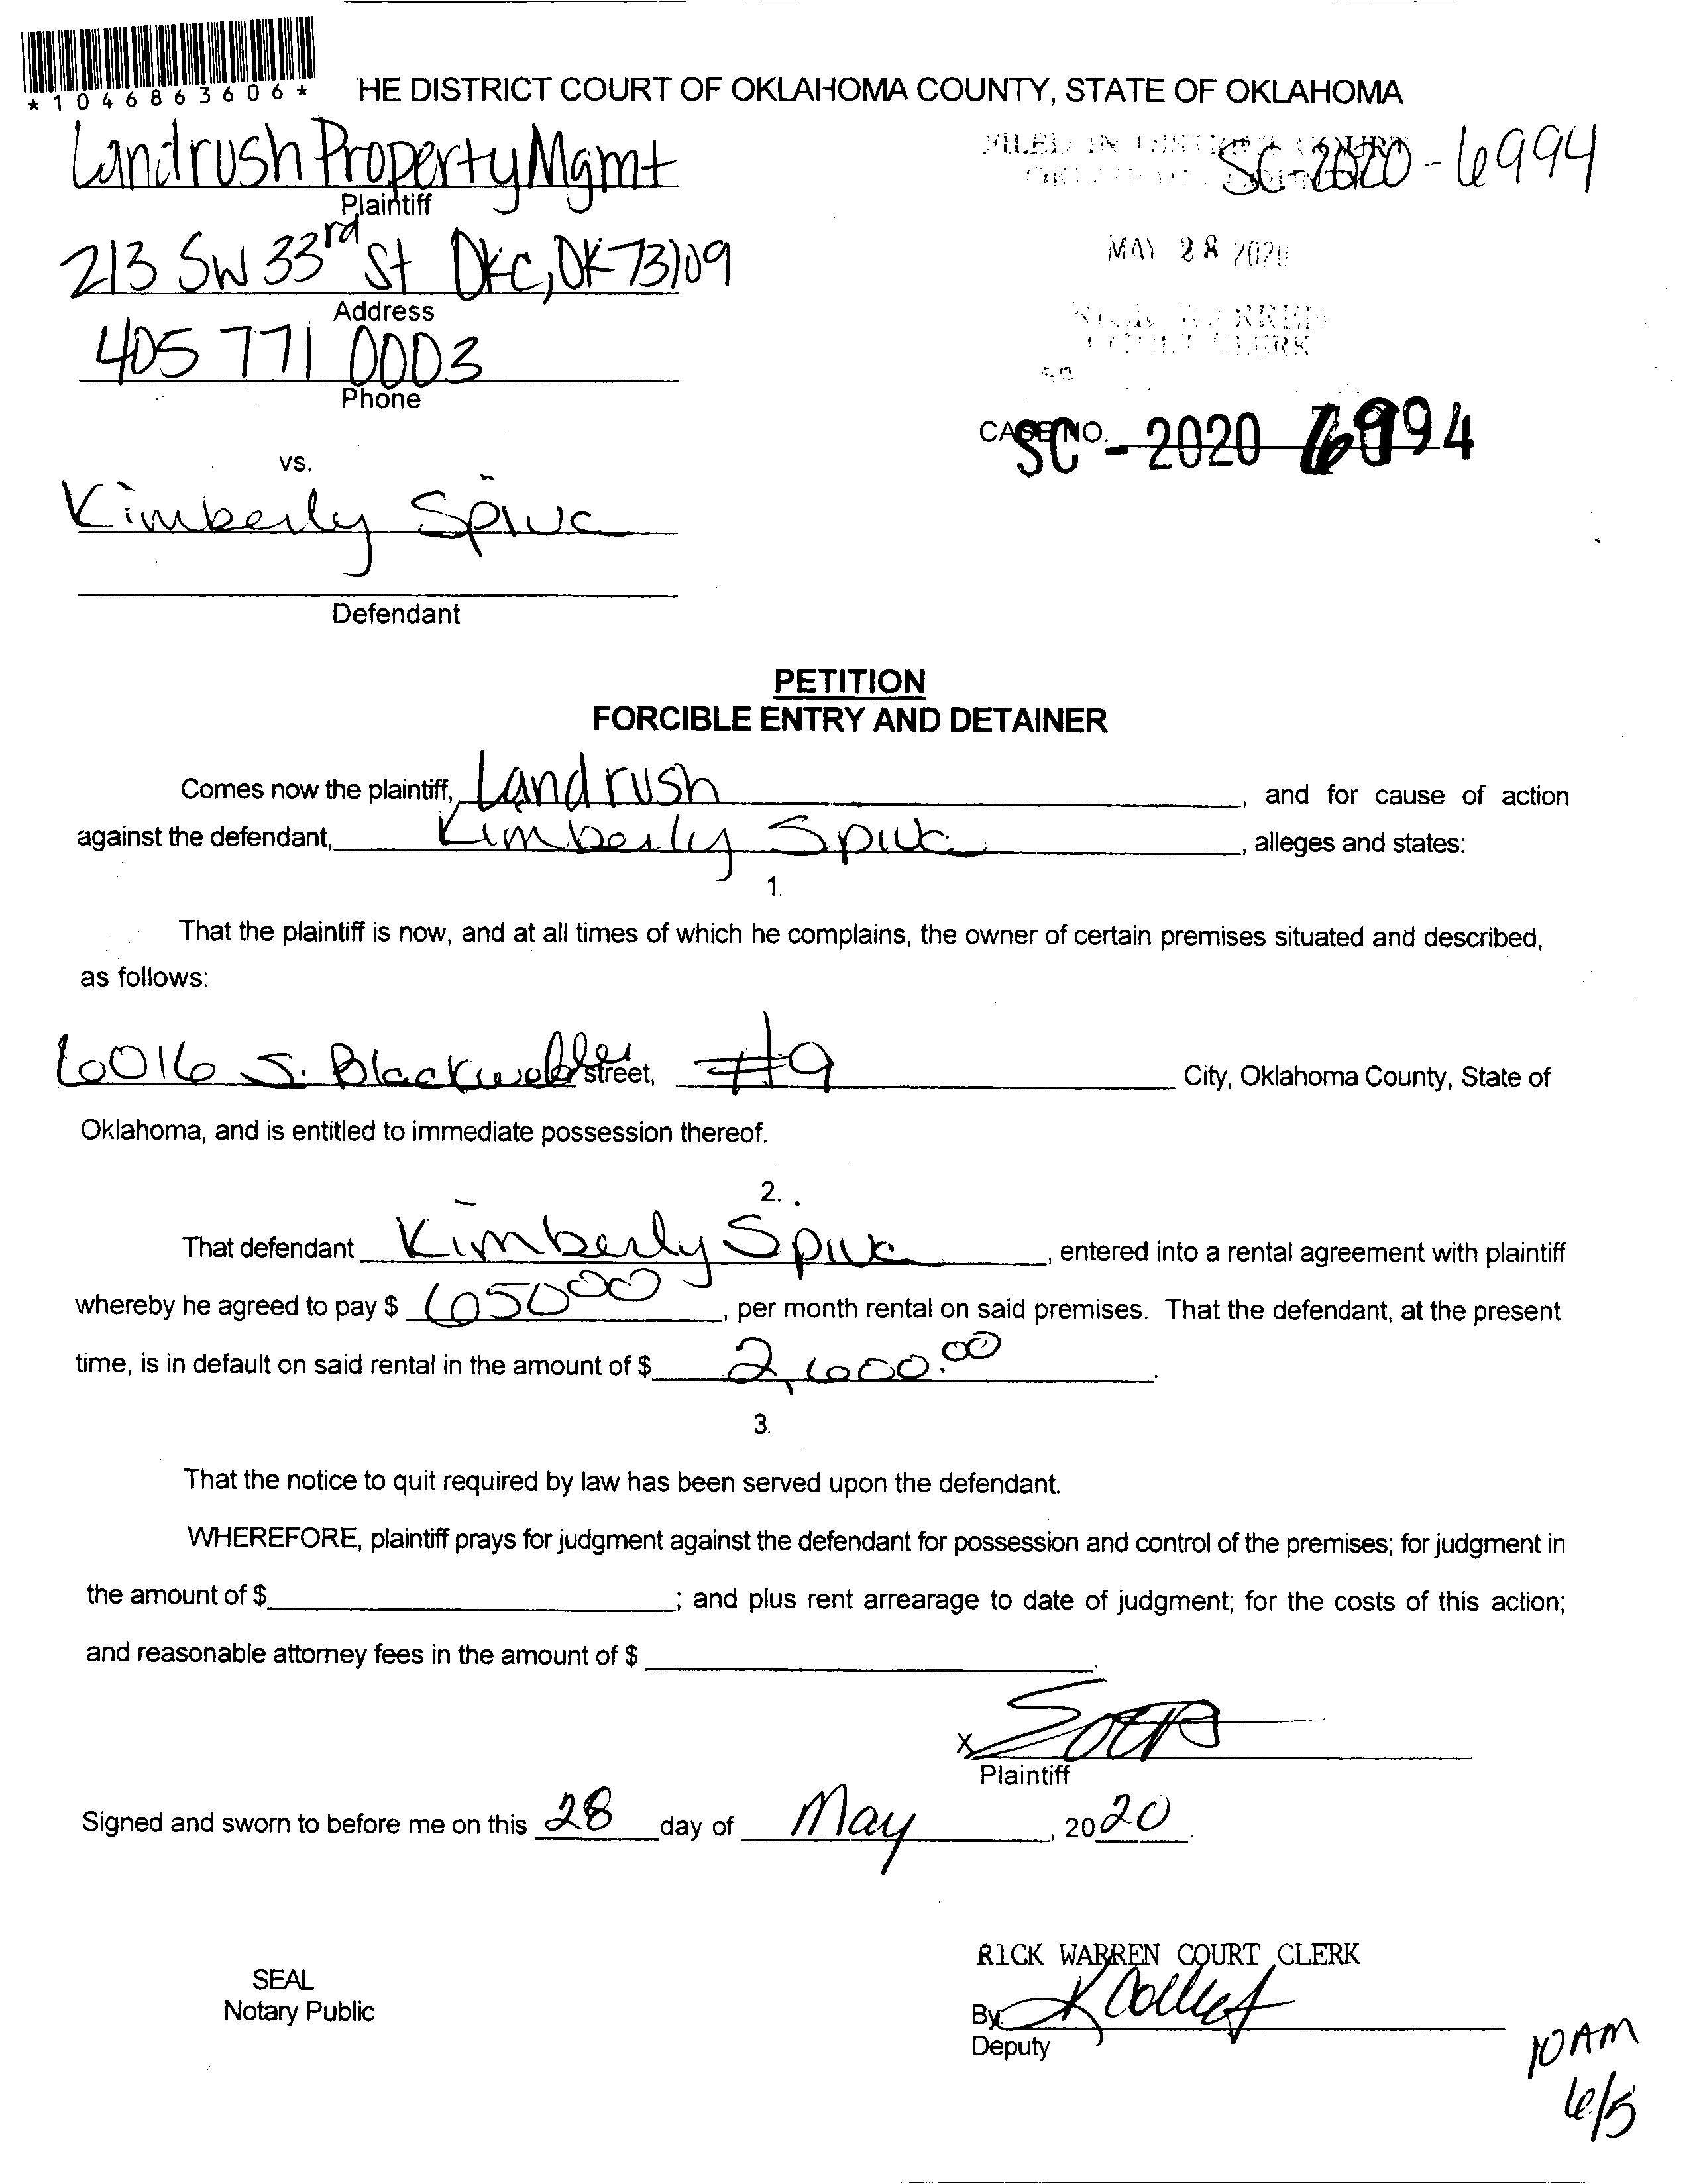 *1046863606*
HE DISTRICT COURT OF OKLAHOMA COUNTY, STATE OF OKLAHOMA
Landrush Property Mgmt
Plaintiff
FILED IN DISTRICT COURT
SC-2020-6994
213 SW 33rd St OKC, OK 73109
Address
MAY 28 2020
405 771 0003
Phone
WARREN
COURT CLERK
CASE NO. SC - 2020 6994
vs.
Kimberly
Defendant
PETITION
FORCIBLE ENTRY AND DETAINER
Comes now the plaintiff, Landrush, and for cause of action
against the defendant, Kimberly, alleges and states:
1.
That the plaintiff is now, and at all times of which he complains, the owner of certain premises situated and described,
as follows:
6016 S. Blackwelder street, #9 City, Oklahoma County, State of
Oklahoma, and is entitled to immediate possession thereof.
2.
That defendant Kimberly, entered into a rental agreement with plaintiff
whereby he agreed to pay $ 650 00, per month rental on said premises. That the defendant, at the present
time, is in default on said rental in the amount of $ 2,600.00.
3.
That the notice to quit required by law has been served upon the defendant.
WHEREFORE, plaintiff prays for judgment against the defendant for possession and control of the premises; for judgment in
the amount of $; and plus rent arrearage to date of judgment; for the costs of this action;
and reasonable attorney fees in the amount of $.
X
Plaintiff
Signed and sworn to before me on this 28 day of May, 2020.
RICK WARREN COURT CLERK
SEAL
Notary Public
By:
Deputy
10 AM
6/5